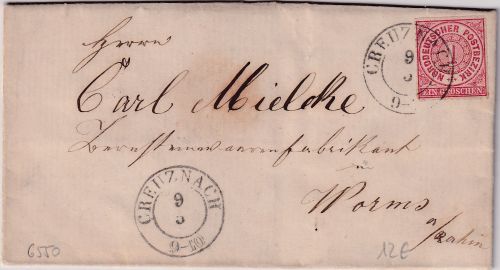 Herrn
CREUZNACH
9
3
9-
NORDDEUTSCHER POSTBEZIRK
1
EIN GROSCHEN
Carl Mielcke
Bernsteinwaarenfabrikant
in
Worms
a/Rhein
CREUZNACH
9
3
9-10
6550
12€